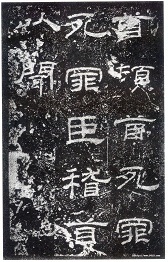 首頓首死罪
死罪臣稽首
以聞